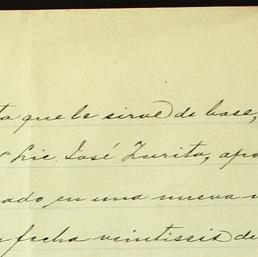 to que le sirve de base,
Lic. José Zurita, apo
ado en una nueva
fecha veintiseis de